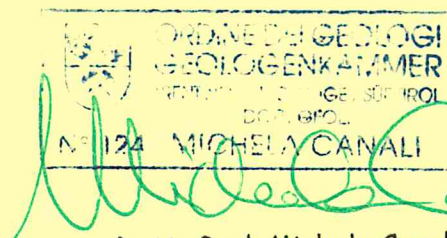 ORDINE DEI GEOLOGI
GEOLOGENKAMMER
DOTT. GEOL.
N° 124 MICHELA CANALI